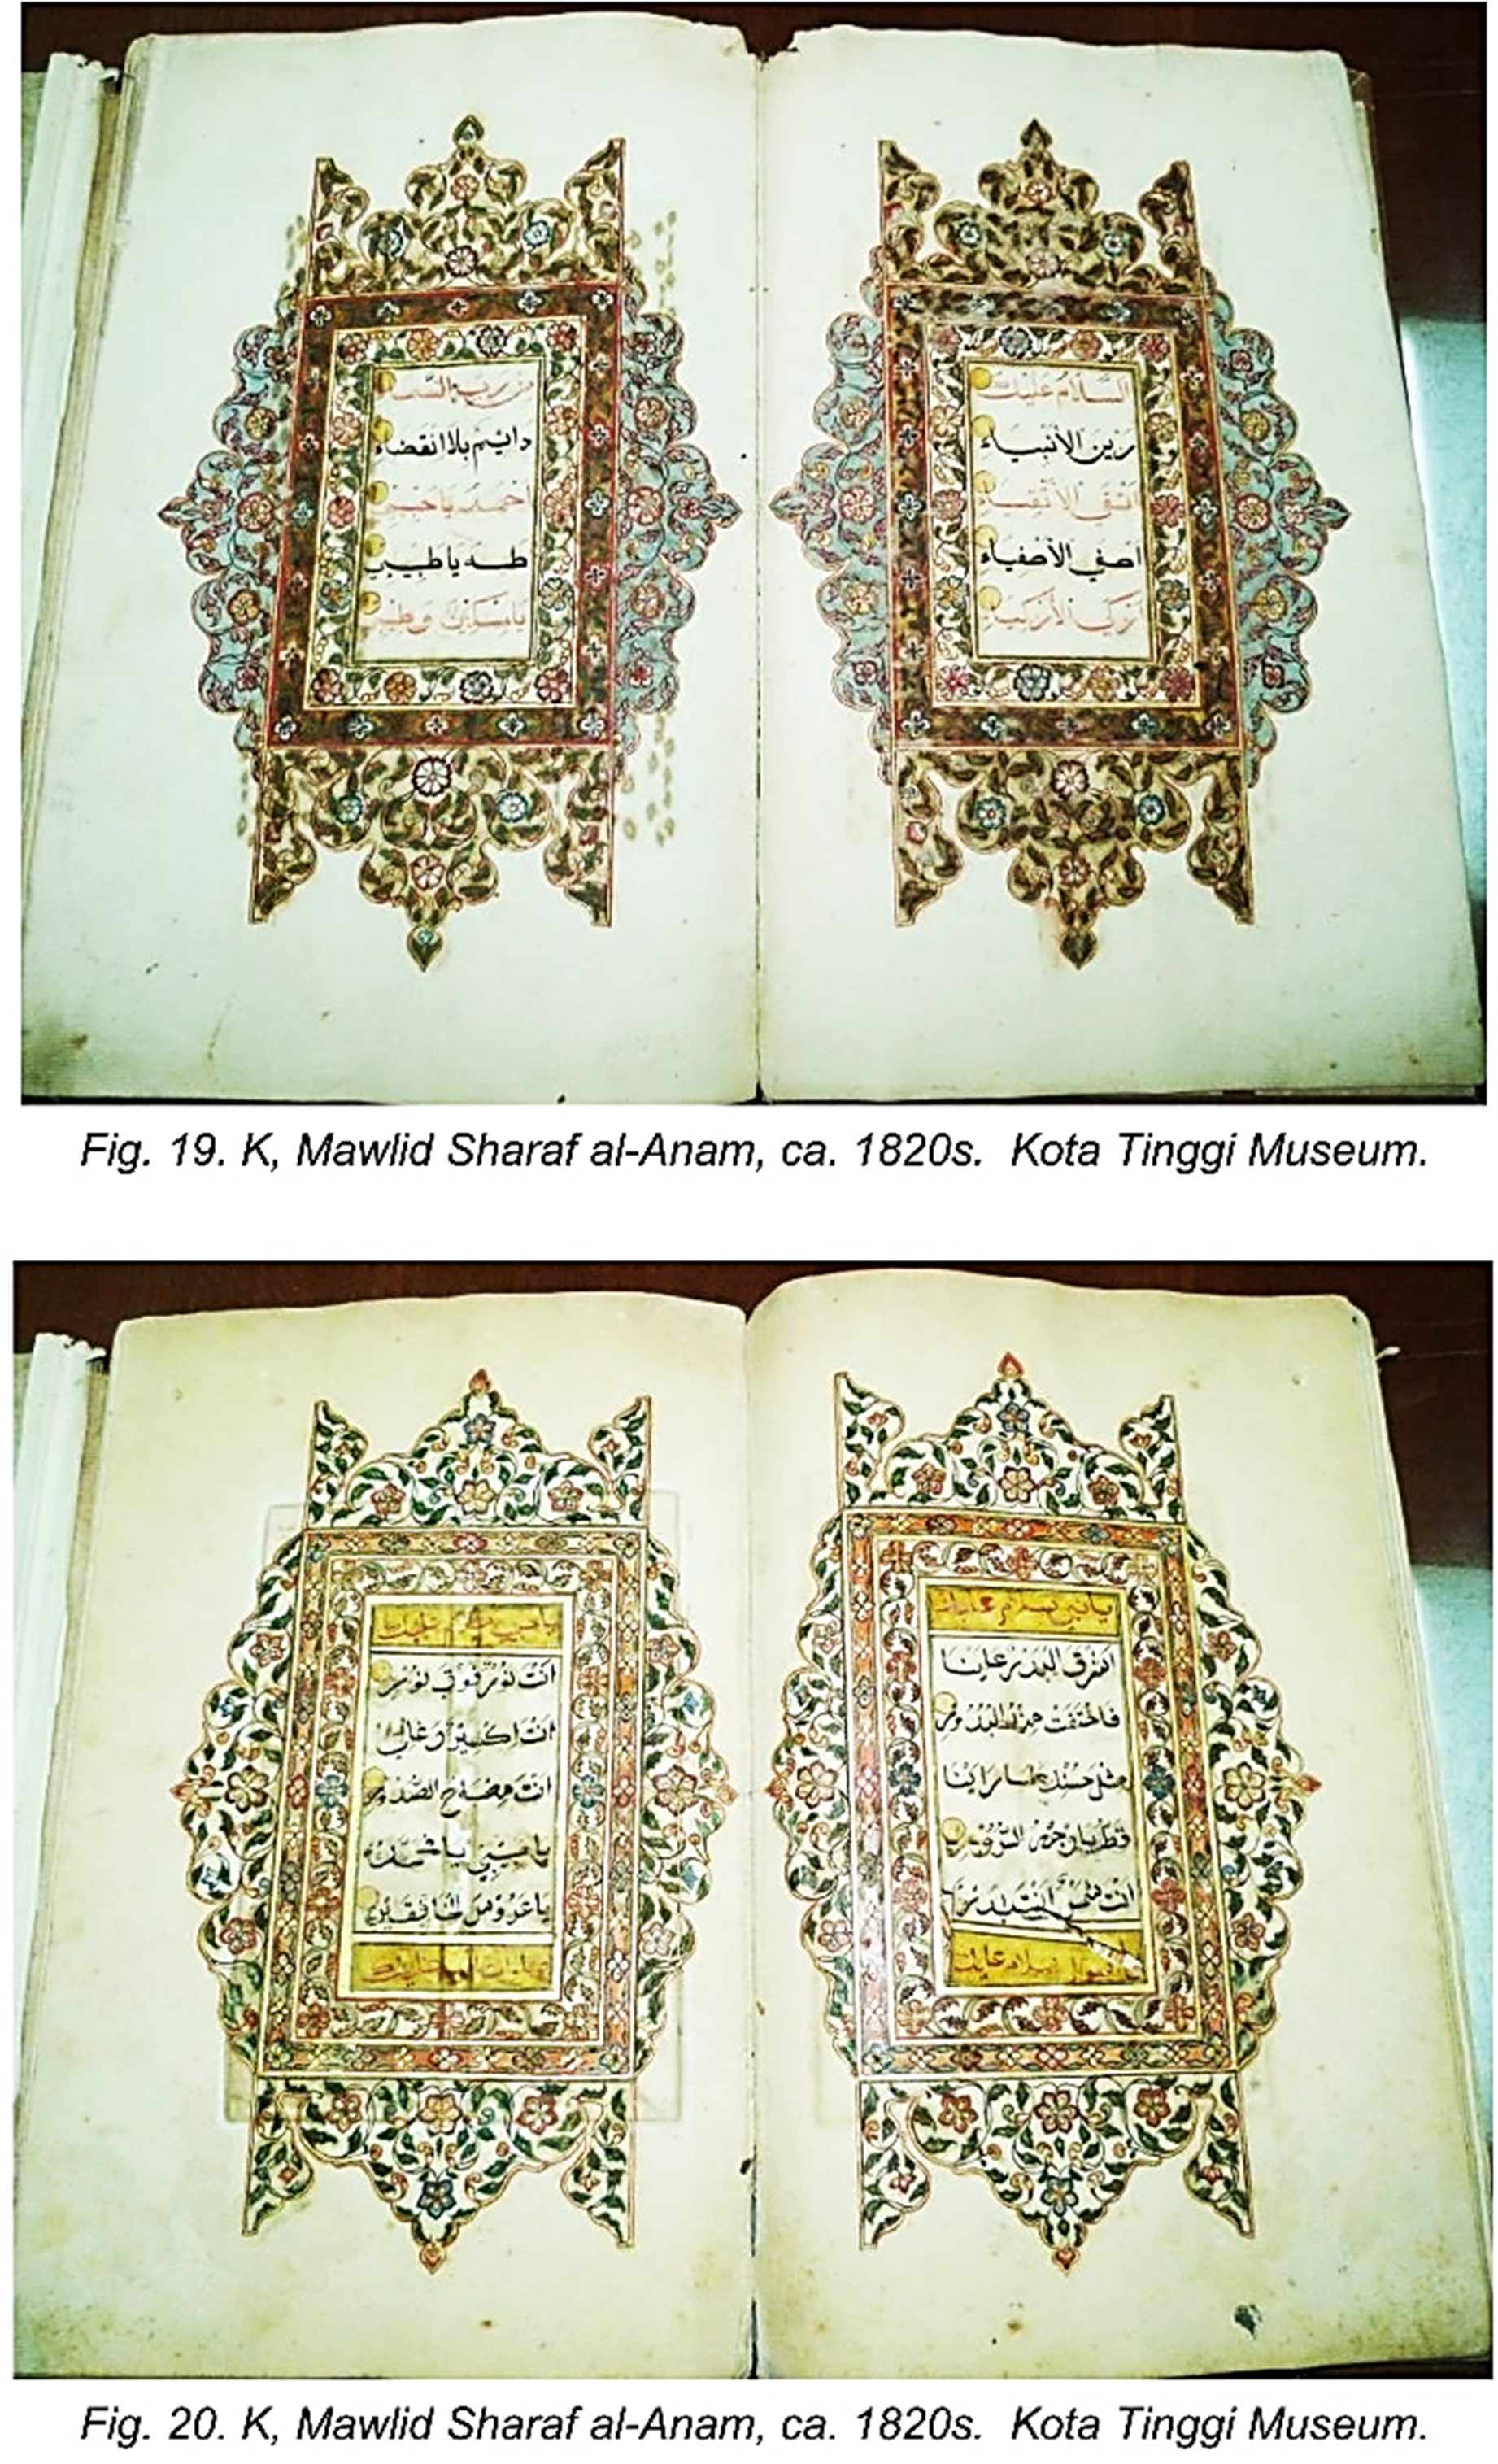 السلام عليك
زين الأنبياء
اتقى الأتقياء
اصفى الأصفياء
ازكى الأزكياء
من رب السماء
دايم بلا انقضاء
احمد يا حبيبي
طه يا طبيبي
يا مسكي وطيبي
Fig. 19. K, Mawlid Sharaf al-Anam, ca. 1820s. Kota Tinggi Museum.
يا نبي سلام عليك
اشرق البدر علينا
فاختفت منه البدور
مثل حسنك ما راينا
قط يا وجه السرور
انت شمس انت بدر
يا رسول سلام عليك
انت نور فوق نور
انت اكسير وغالي
انت مصباح الصدور
يا حبيبي يا محمد
يا عروس الخافقين
Fig. 20. K, Mawlid Sharaf al-Anam, ca. 1820s. Kota Tinggi Museum.